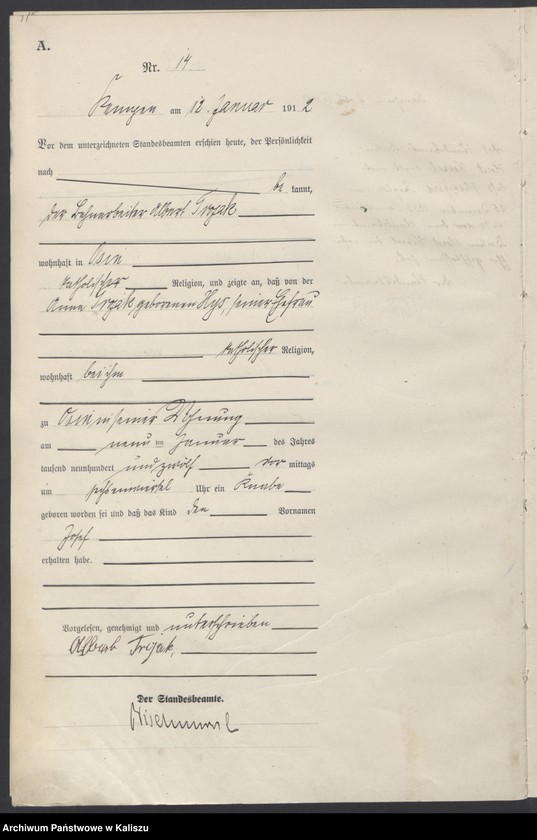 A.
Nr. 14
Kempen am 12. Januar 1912
Vor dem unterzeichneten Standesbeamten erschien heute, der Persönlichkeit
nach be kannt,
der Bahnarbeiter Albert Trzak
wohnhaft in Osin
katholischer Religion, und zeigte an, daß von der
Anna Trzak, geborenen Hys, seiner Ehefrau
katholischer Religion,
wohnhaft bei ihm
zu Osin in seiner Wohnung
am neun ten Januar des Jahres
tausend neunhundert und zwölf vor mittags
um Uhr ein Knabe
geboren worden sei und daß das Kind den Vornamen
Josef
erhalten habe.
Vorgelesen, genehmigt und unterschrieben
Der Standesbeamte.
Archiwum Państwowe w Kaliszu